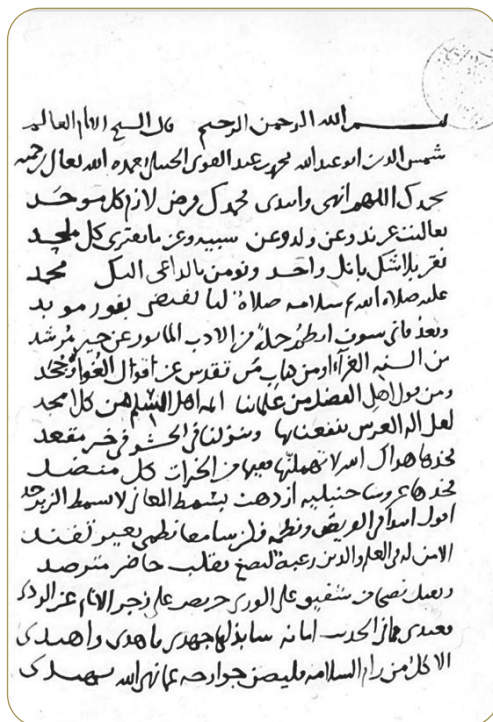 بسم الله الرحمن الرحيم قال الشيخ الامام العالم
شمس الدين ابو عبد الله محمد بن عبد القوي الحنبلي تغمده الله تعالى برحمته
بحمدك اللهم انهي وابتدي فحمدك فرض لازم كل موحد
تعاليت عن ند وعن ولد وعن شبيه وعن ما يفتري كل ملحد
نقر بلا شك بانك واحد ونومن بالداعي اليك محمد
عليه صلاة الله ثم سلامه صلاة لنا تقضي بفوز موبد
وبعد فاني سوف انظم جملة من الادب الماثور عن خير مرشد
من السنة الغراء او من كتاب من تقدس عن اقوال الغواة وجحد
ومن قول اهل الفضل من علمائنا ايمة اهل السلم من كل امجد
لعل اله العرش ينفعنا بها وينزلنا في الحشر في خير مقعد
فخذها هداك الله لا تهملنها ففيها من الخيرات كل منضد
فخذها عروسا حنبلية ازدهت بسمط المعاني لا بسمط الزبرجد
اقول ابتدا في القريض ونظمه فلرب سامعا نظمي بغير تفند
الا من له في العلم والدين رغبة ليصغ بقلب حاضر مترصد
ويقبل نصحا من شفيق على الورى حريص على زجر الانام عن الردى
فعندي من الحديث امانة سابذلها جهدي فاهدي واهتدي
الا كل من رام السلامة فليصن جوارحه عما نهى الله يهتدي